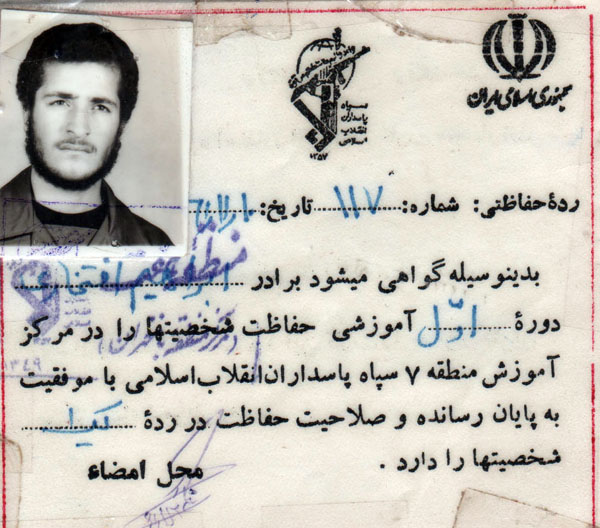 جمهوری اسلامی ایران
سپاه
پاسداران
انقلاب
اسلامی
۱۳۵۷
ردهٔ حفاظتی: شماره: ۱۱۷ تاریخ:
بدینوسیله گواهی میشود برادر
دورهٔ اوّل آموزشی حفاظت شخصیتها را در مرکز
آموزش منطقه ۷ سپاه پاسداران انقلاب اسلامی با موفقیت
به پایان رسانده و صلاحیت حفاظت در ردهٔ یک
شخصیتها را دارد.
محل امضاء